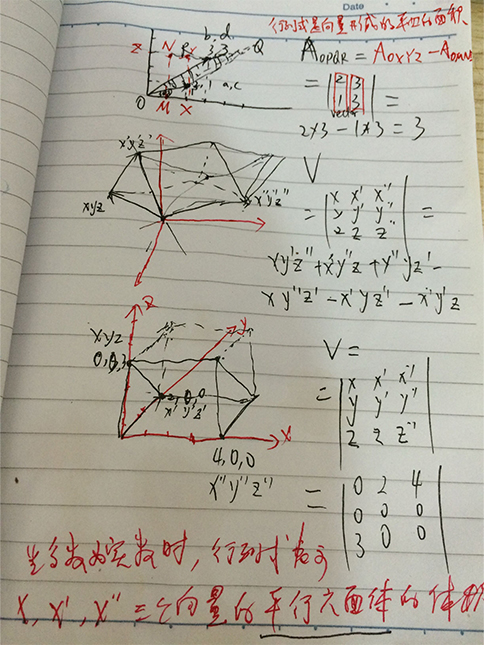 Date
行列式是向量形成的平行四的面积.
b, d
Z N P 3,3 Q
2,1 a,c
O M X
A OPQR = A OXYZ - A OMN
= | 2 3 |
| 1 3 | =
vector
2×3 - 1×3 = 3
x'y'z'
xyz
x''y''z''
V
= | x x' x'' |
| y y' y'' | =
| z z z |
xy'z'' + x'y''z + x''yz' -
xy''z' - x'yz'' - x''y'z
z
y
xyz
0,0,3
2,0,0
x' y' z'
x
4,0,0
x''y''z''
V =
= | x x' x'' |
| y y' y'' |
| z z z'' |
= | 0 2 4 |
| 0 0 0 |
| 3 0 0 |
数为实数时，行列式表示
x, x', x'' 三个向量的平行六面体的体积